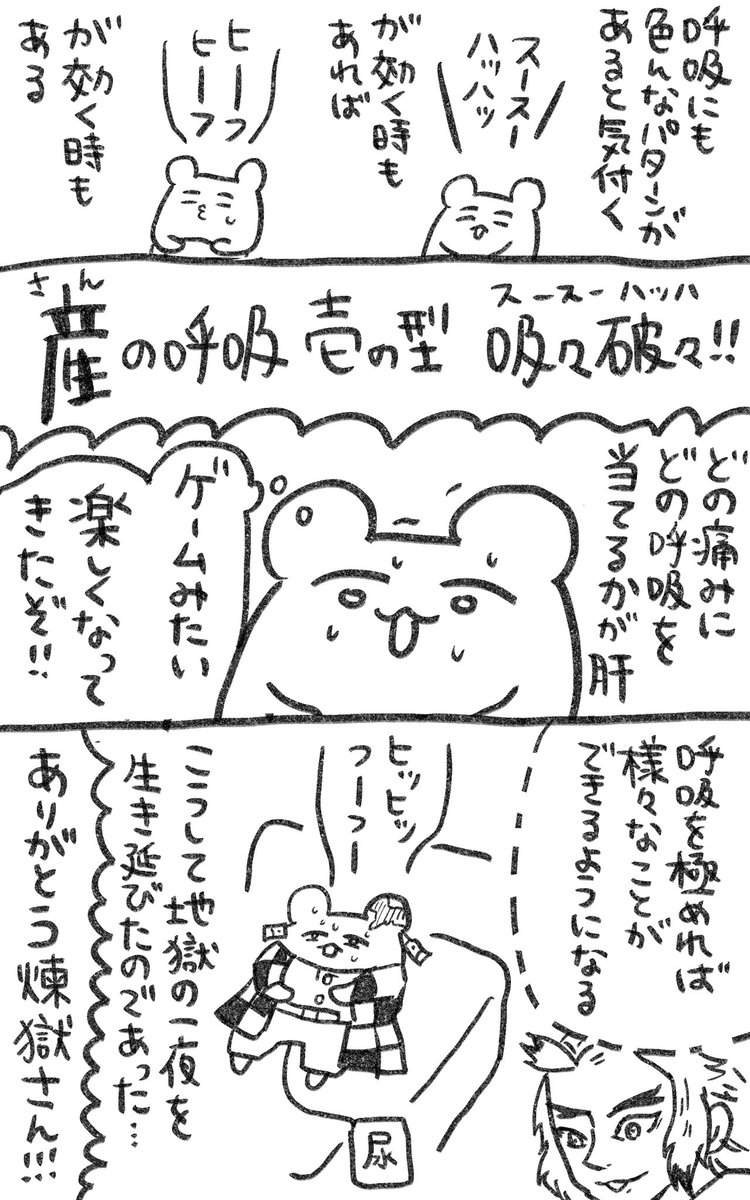 呼吸にも
色んなパターンが
あると気付く
スースー
ハッハッ
が効く時も
あれば
ヒーフ
ヒーフ
が効く時も
ある
さん
スースーハッハ
産の呼吸 壱の型 吸々破々!!
どの痛みに
どの呼吸を
当てるかが肝
ゲームみたい
楽しくなって
きたぞ!!
呼吸を極めれば
様々なことが
できるようになる
ヒッヒッ
フーフー
こうして地獄の一夜を
生き延びたのであった…
尿
ありがとう煉獄さん!!!